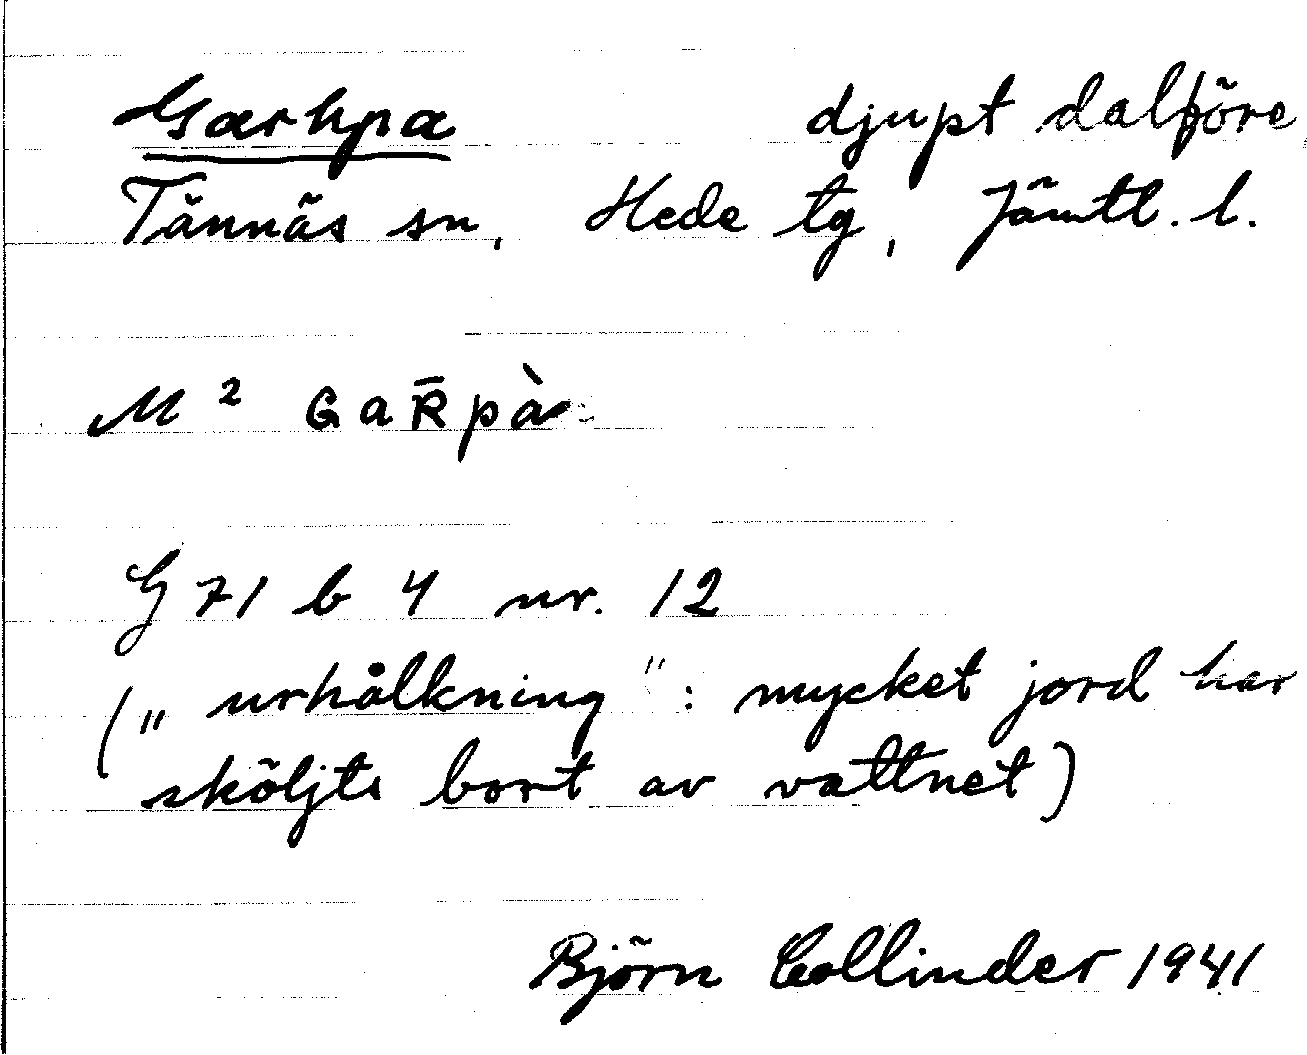 Garhpa djupt dalföre
Tännäs sn, Hede tg, Jämtl. l.
M² GaR̄pà
G 71 b 4 nr. 12
("urhålkning": mycket jord har
sköljts bort av vattnet)
Björn Collinder 1941